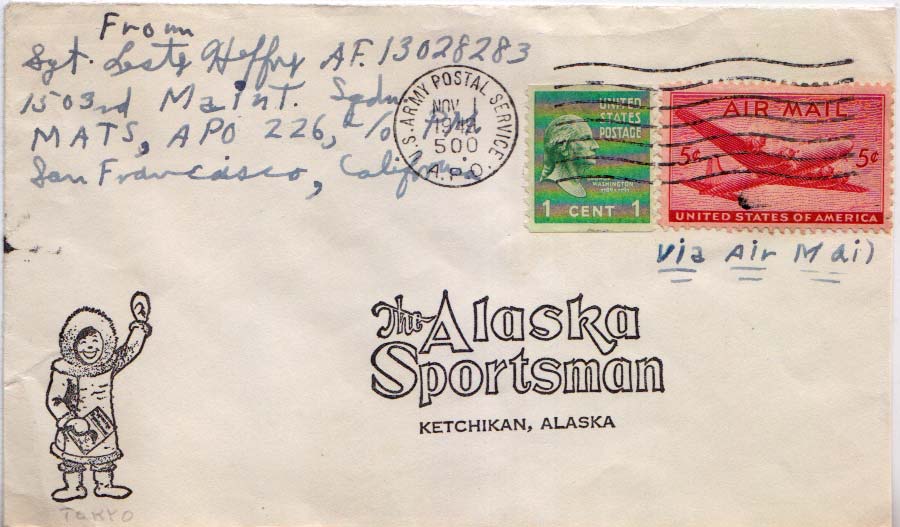 From
Sgt. AF. 13028283
1503rd Maint. Sqdn
MATS, APO 226, c/o PM
San Francisco, California
U.S. ARMY POSTAL SERVICE
NOV 1
500
A.P.O.
UNITED
STATES
POSTAGE
WASHINGTON
1 CENT 1
AIR MAIL
5¢ 5¢
UNITED STATES OF AMERICA
via Air Mail
The Alaska
Sportsman
KETCHIKAN, ALASKA
TOKYO